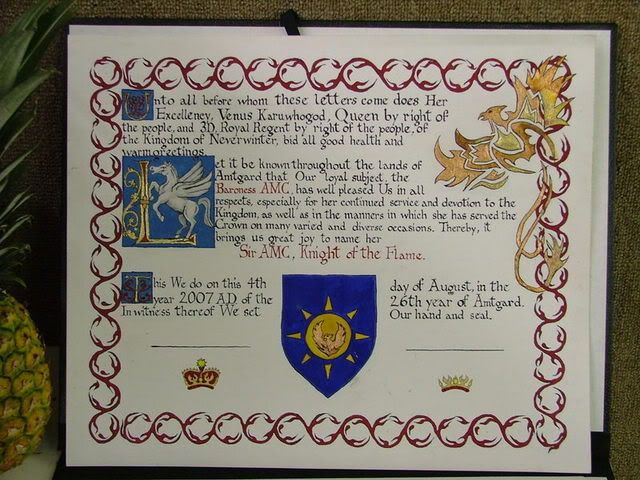 Unto all before whom these letters come does Her
Excellency, Venus Karuwhogod, Queen by right of
the people, and 3D, Royal Regent by right of the people, of
the Kingdom of Neverwinter, bid all good health and
warm greetings.
Let it be known throughout the lands of
Amtgard that Our loyal subject, the
Baroness AMC, has well pleased Us in all
respects, especially for her continued service and devotion to the
Kingdom, as well as in the manners in which she has served the
Crown on many varied and diverse occasions. Thereby, it
brings us great joy to name her
Sir AMC, Knight of the Flame.
This We do on this 4th day of August, in the
year 2007 AD of the 26th year of Amtgard.
In witness thereof We set Our hand and seal.